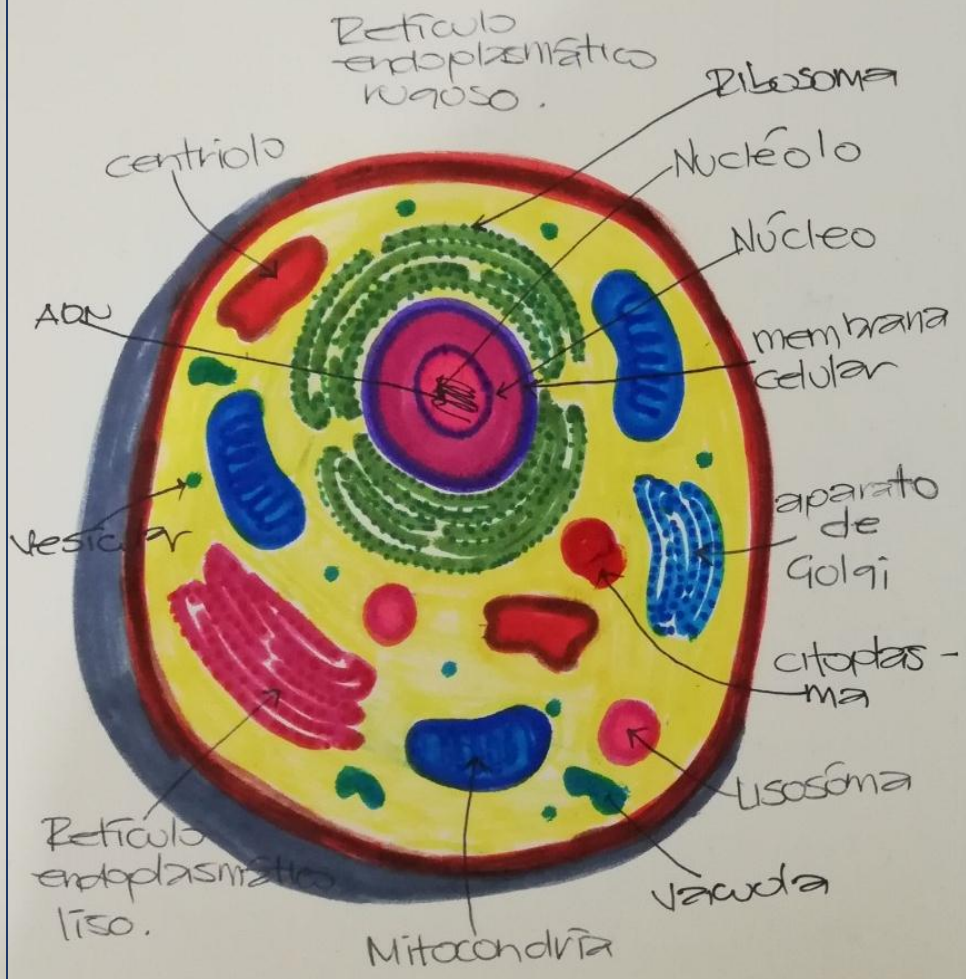 Retículo
endoplasmático
rugoso.
Ribosoma
centriolo
Nucléolo
Núcleo
ADN
membrana
celular
aparato
de
Golgi
vesicular
citoplas-
ma
Lisosóma
Retículo
endoplasmático
liso.
vacuola
Mitocondría